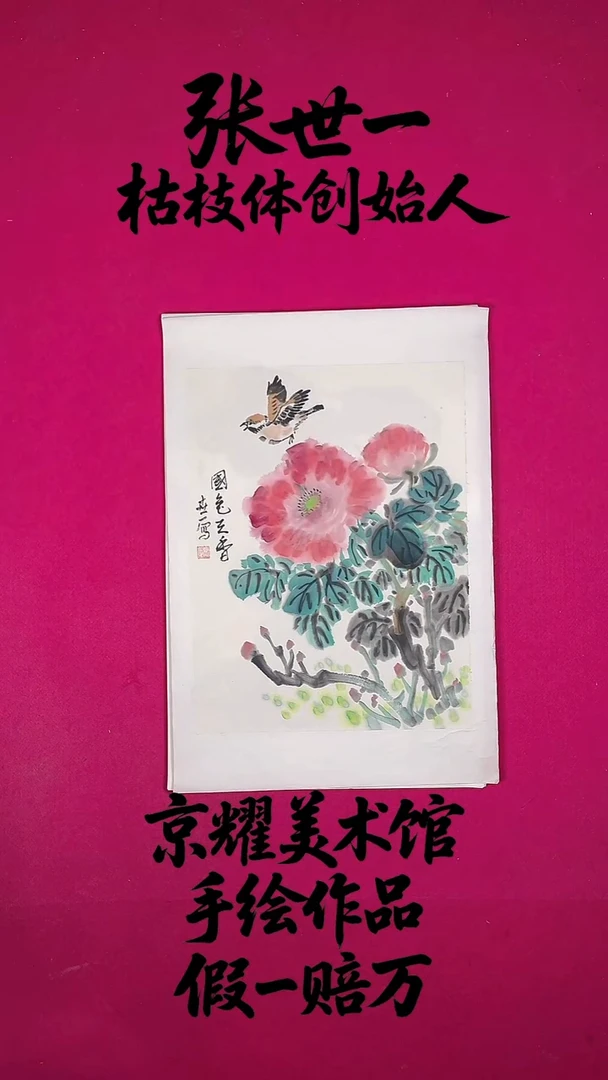 张世一
枯枝体创始人
國色天香
世一寫
京耀美术馆
手绘作品
假一赔万